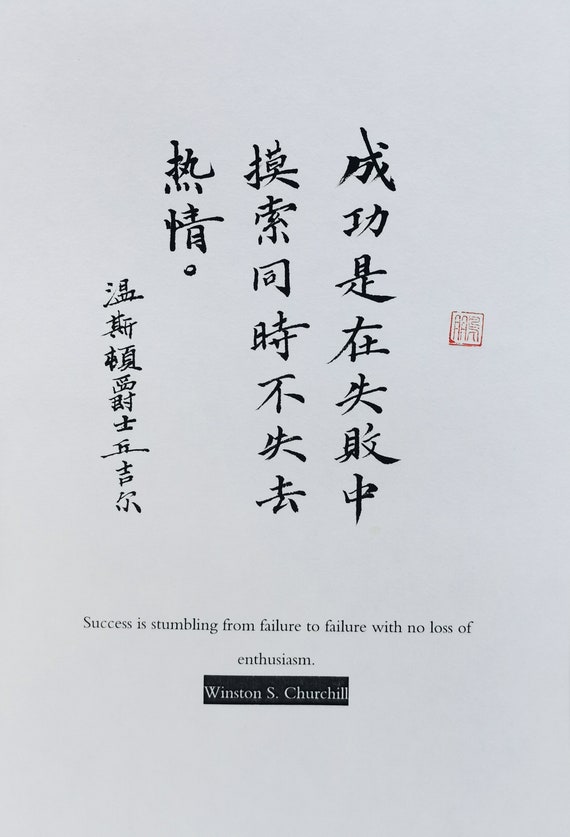 成功是在失敗中
摸索同時不失去
热情。
温斯頓爵士丘吉尔
Success is stumbling from failure to failure with no loss of
enthusiasm.
Winston S. Churchill